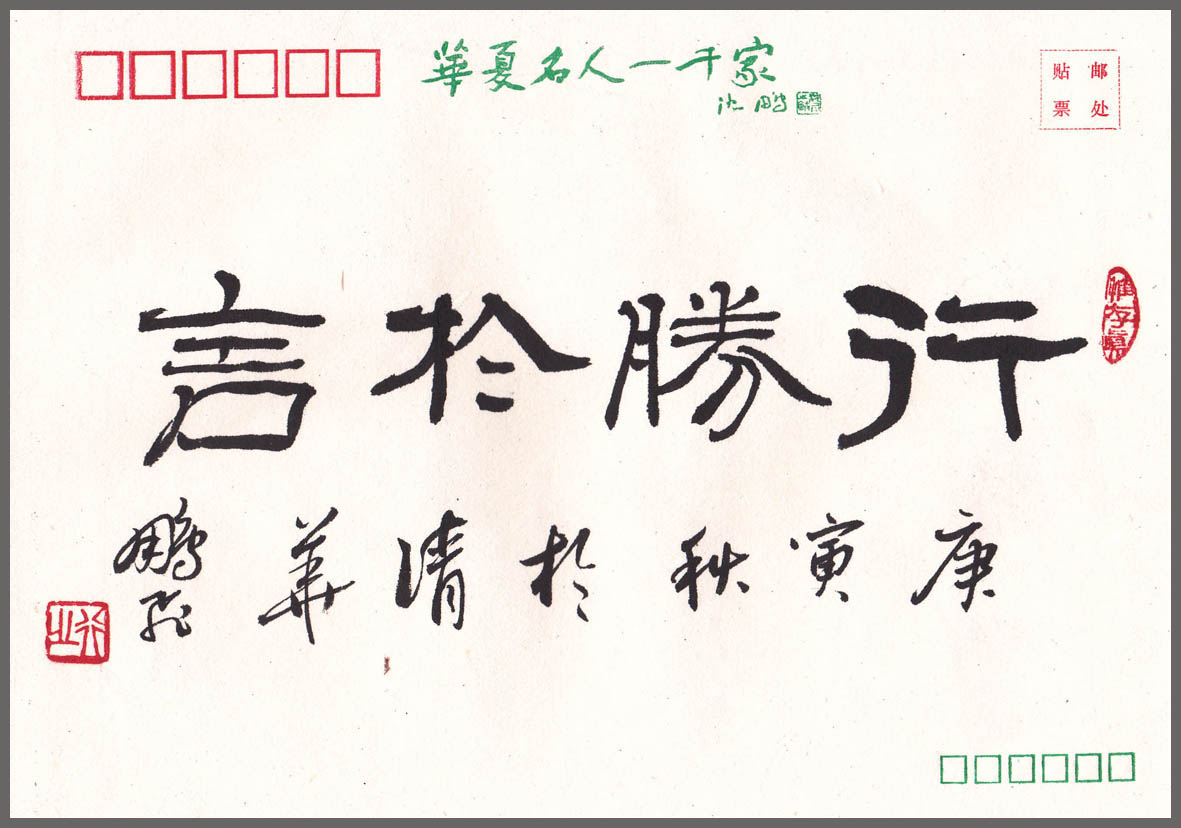 華夏名人一千家
沈鹏
贴邮
票处
行勝於言
庚寅秋於清華
鹏飞